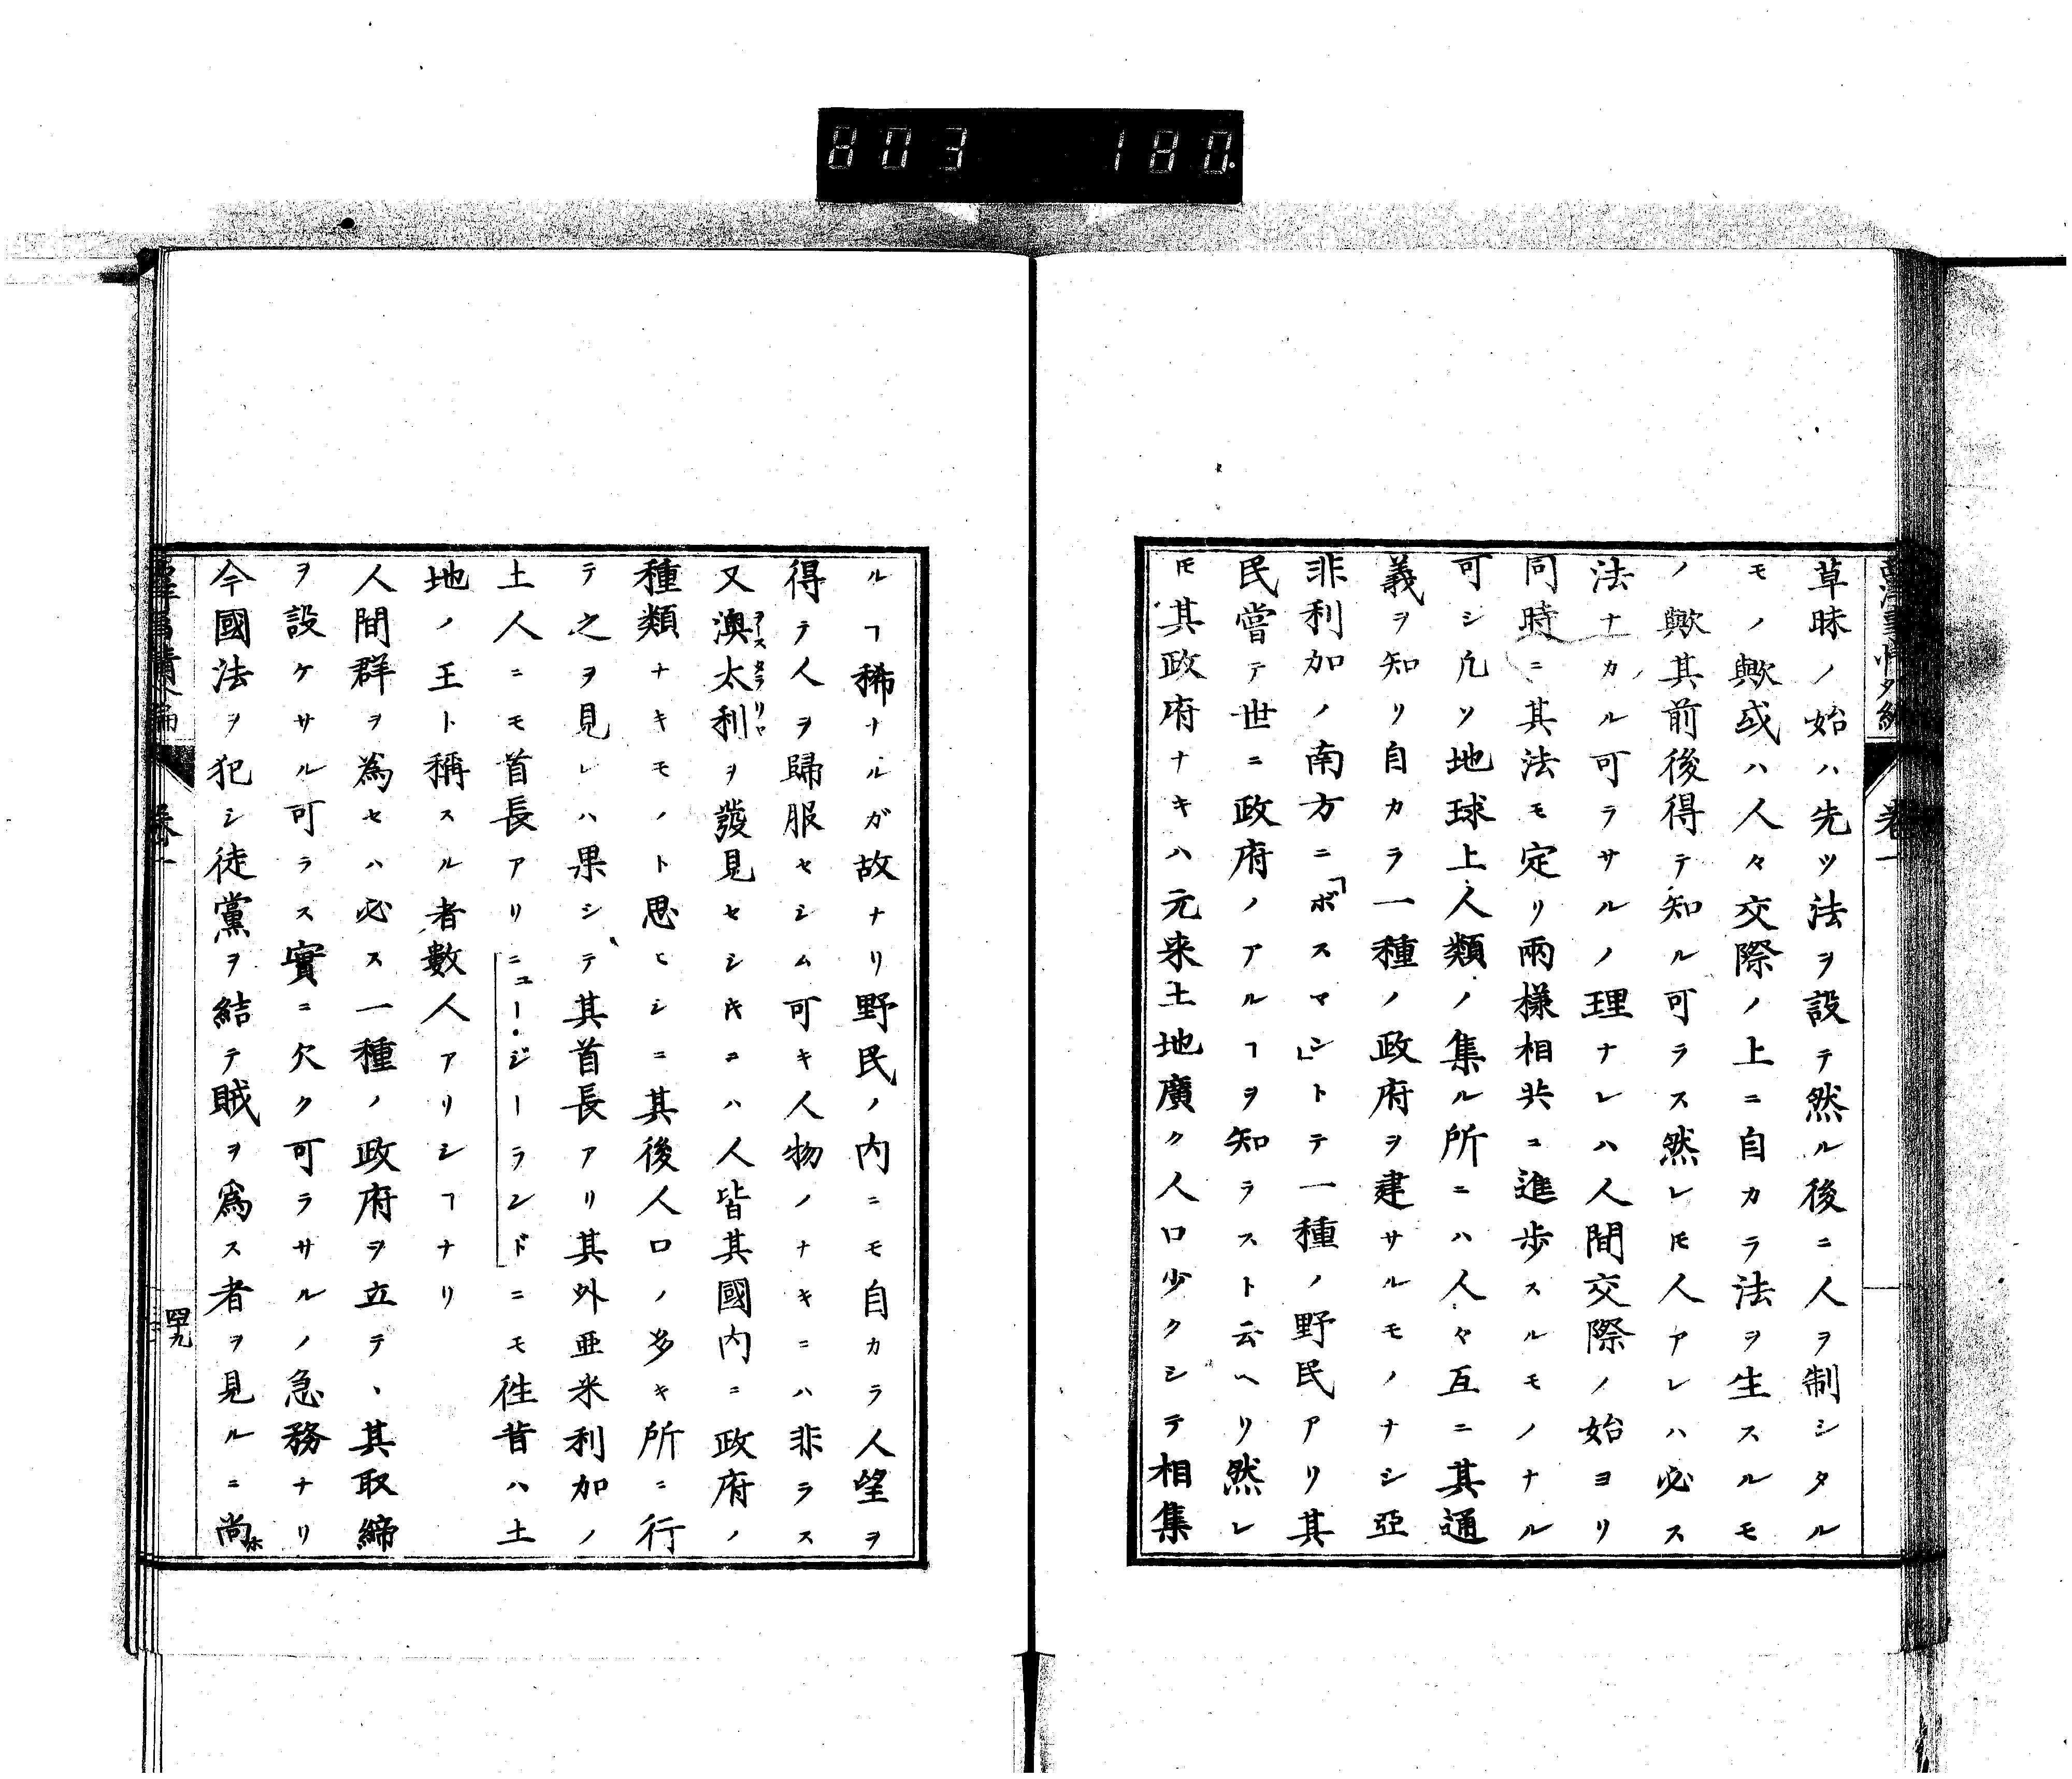 803 180
草昧ノ始ハ先ツ法ヲ設テ然ル後ニ人ヲ制シタル
モノ歟或ハ人々交際ノ上ニ自カラ法ヲ生スルモ
ノ歟其前後得テ知ル可ラス然レ𪜈人アレハ必ス
法ナカル可ラサルノ理ナレハ人間交際ノ始ヨリ
同時ニ其法モ定リ兩樣相共ニ進歩スルモノナル
可シ凢ソ地球上人類ノ集ル所ニハ人々互ニ其通
義ヲ知リ自カラ一種ノ政府ヲ建サルモノナシ亞
非利加ノ南方ニ「ボスマン」トテ一種ノ野民アリ其
民嘗テ世ニ政府ノアルヿヲ知ラスト云ヘリ然レ
𪜈其政府ナキハ元来土地廣ク人口少クシテ相集
ルヿ稀ナルガ故ナリ野民ノ内ニモ自カラ人望ヲ
得テ人ヲ歸服セシム可キ人物ノナキニハ非ラス
又澳太利ヲ發見セシ𪜈ニハ人皆其國内ニ政府ノ
種類ナキモノト思ヒシニ其後人口ノ多キ所ニ行
テ之ヲ見レハ果シテ其首長アリ其外亜米利加ノ
土人ニモ首長アリニュー・ジーランドニモ徃昔ハ土
地ノ王ト稱スル者數人アリシヿナリ
人間群ヲ為セハ必ス一種ノ政府ヲ立テ、其取締
ヲ設ケサル可ラス實ニ欠ク可ラサルノ急務ナリ
今國法ヲ犯シ徒黨ヲ結テ賊ヲ為ス者ヲ見ルニ尚
卷一
四十九